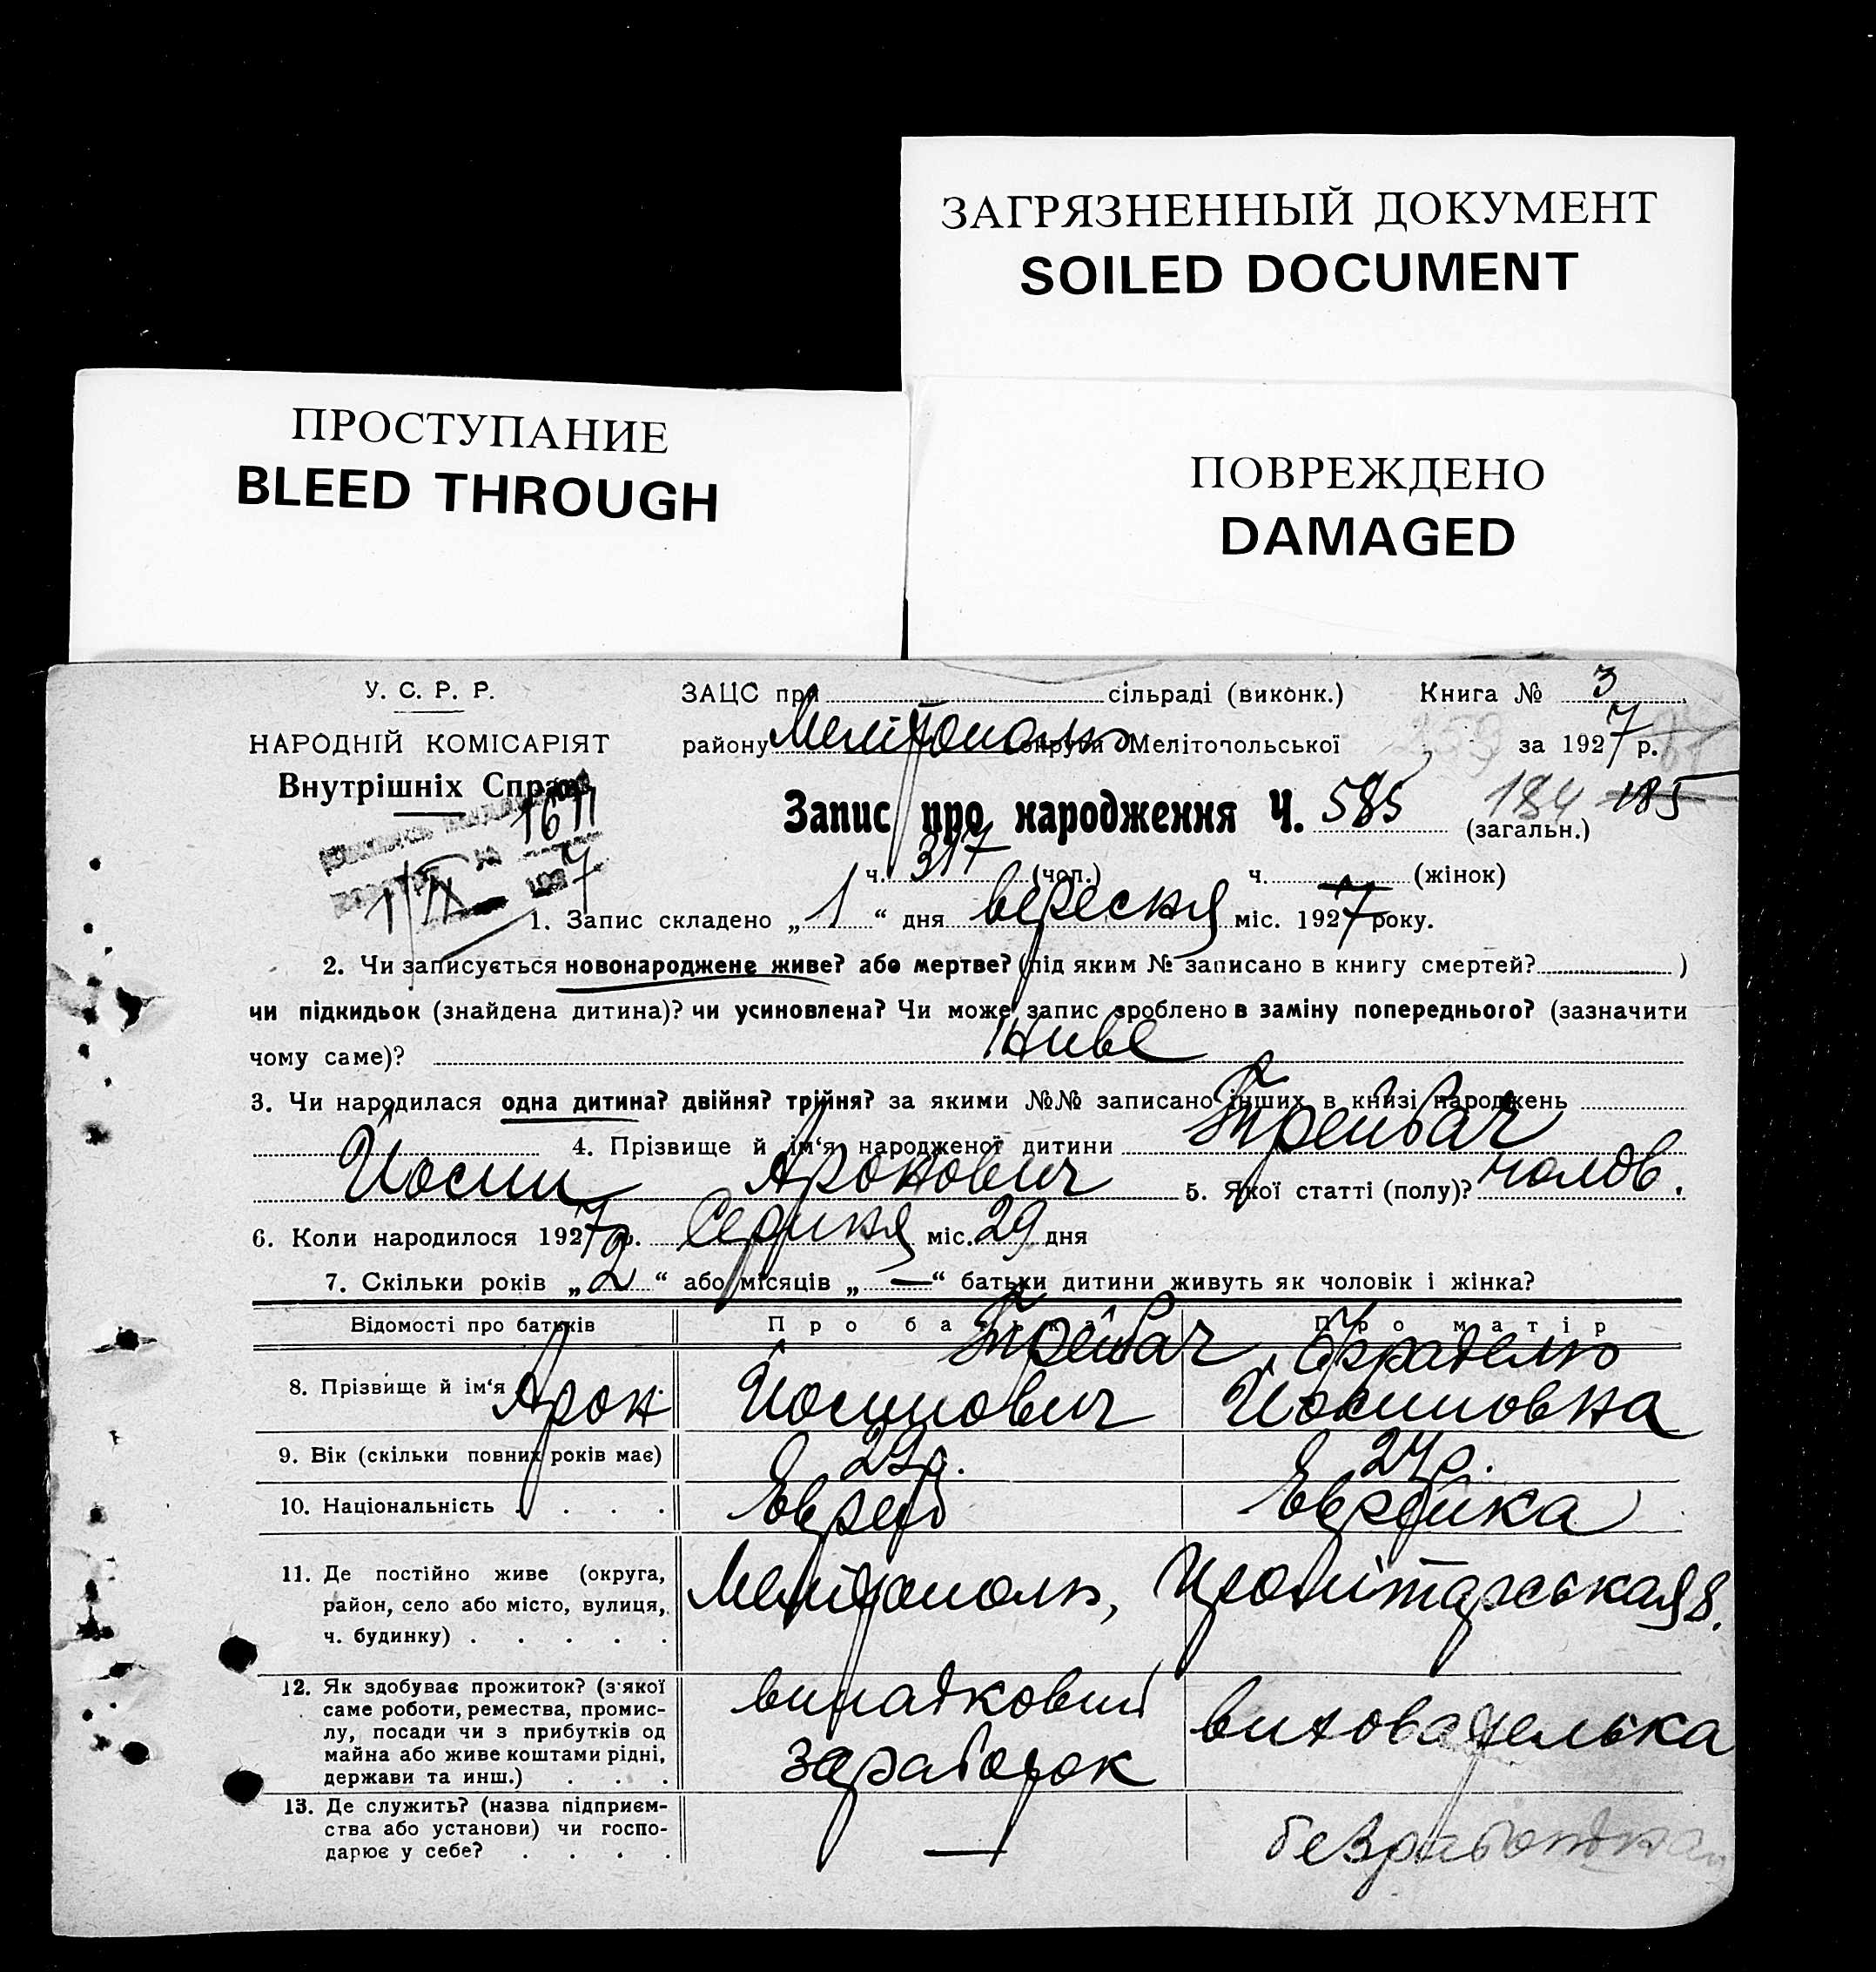 ЗАГРЯЗНЕННЫЙ ДОКУМЕНТ
SOILED DOCUMENT
ПРОСТУПАНИЕ
BLEED THROUGH
ПОВРЕЖДЕНО
DAMAGED
У. С. Р. Р.
НАРОДНІЙ КОМІСАРІЯТ
Внутрішніх Справ
1611
1/IX 1927
ЗАЦС при сільраді (виконк.) Книга № 3
району Мелітополь округи Мелітопольської за 1927 р.
Запис про народження Ч. 585 (загальн.) 184 185
ч. 317 (чол.) ч. — (жінок)
1. Запис складено „1“ дня вересня міс. 1927 року.
2. Чи записується новонароджене живе? або мертве? (під яким № записано в книгу смертей? )
чи підкидьок (знайдена дитина)? чи усиновлена? Чи може запис зроблено в заміну попереднього? (зазначити
чому саме)? Живе
3. Чи народилася одна дитина? двійня? трійня? за якими №№ записано інших в книзі народжень
4. Прізвище й ім‘я народженої дитини Трейвач
Йосип Аронович 5. Якої статті (полу)? чолов.
6. Коли народилося 1927 р. Серпня міс. 29 дня
7. Скільки років „2“ або місяців „—“ батьки дитини живуть як чоловік і жінка?
Відомості про батьків Про батька Про матір
8. Прізвище й ім‘я Трейвач
Арон Йосипович Йосиповна
9. Вік (скільки повних років має) 29р. 27р.
10. Національність . . . . Еврей Еврейка
11. Де постійно живе (округа,
район, село або місто, вулиця,
ч. будинку) . . . . .
Мелітополь, 8.
12. Як здобуває прожиток? (з‘якої
саме роботи, ремества, промис-
лу, посади чи з прибутків од
майна або живе коштами рідні,
держави та инш.) . . .
випадковий
заработок
вихователька
13. Де служить? (назва підприєм-
ства або установи) чи госпо-
дарює у себе? . . . .
—